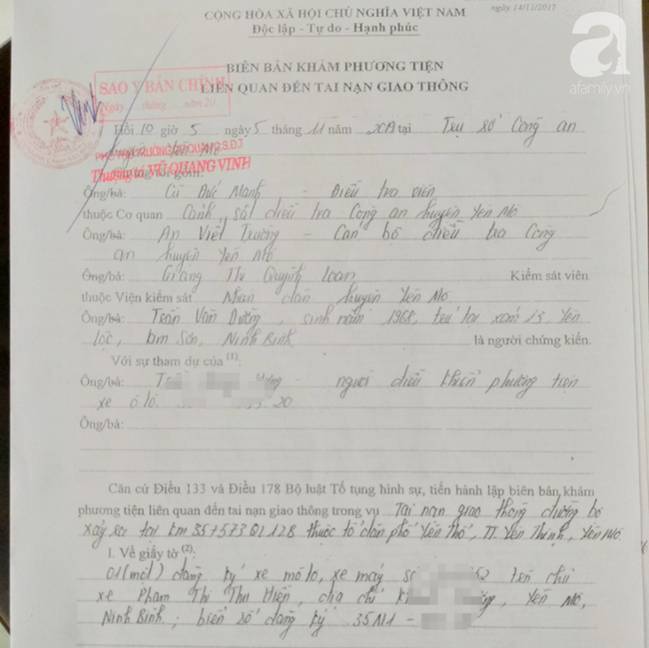 ngày 14/11/2017
CỘNG HÒA XÃ HỘI CHỦ NGHĨA VIỆT NAM
Độc lập - Tự do - Hạnh phúc
afamily.vn
BIÊN BẢN KHÁM PHƯƠNG TIỆN
LIÊN QUAN ĐẾN TAI NẠN GIAO THÔNG
SAO Y BẢN CHÍNH
Ngày tháng năm 20
Hồi 10 giờ 5 ngày 5 tháng 11 năm tại Trụ sở Công an
huyện Yên Mô
Thượng tá VŨ QUANG VINH
gồm:
Ông/bà: Cù Đức Mạnh - Điều tra viên
thuộc Cơ quan Cảnh sát điều tra Công an huyện Yên Mô
Ông/bà: An Viết Trường - Cán bộ điều tra Công
an huyện Yên Mô
Ông/bà: Giang Thị Quỳnh Loan Kiểm sát viên
thuộc Viện kiểm sát Nhân dân huyện Yên Mô
Ông/bà: Trần Văn Dưỡng, sinh năm 1968, trú tại xóm 13 Yên
Lộc, Kim Sơn, Ninh Bình là người chứng kiến.
Với sự tham dự của (1):
Ông/bà: người điều khiển phương tiện
xe ô tô. 20
Ông/bà:
Căn cứ Điều 133 và Điều 178 Bộ luật Tố tụng hình sự, tiến hành lập biên bản khám
phương tiện liên quan đến tai nạn giao thông trong vụ Tai nạn giao thông đường bộ
xảy ra tại km 35+573 QL12B thuộc tổ dân phố Yên Thổ, TT. Yên Thịnh, Yên Mô.
1. Về giấy tờ (2):
01 (một) đăng ký xe mô tô, xe máy số 52 tên chủ
xe Phạm Thị Thu Hiền, địa chỉ Yên Mô,
Ninh Bình; biển số đăng ký 35N1 -